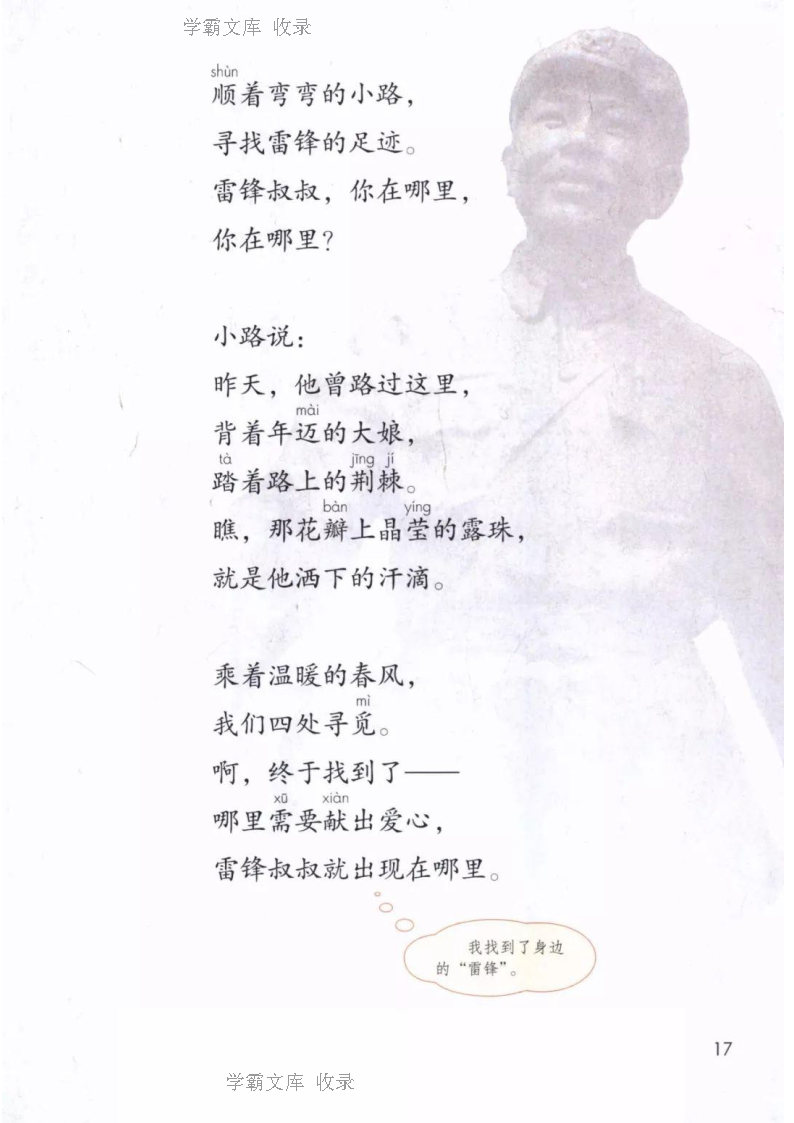 学霸文库 收录
shùn
顺着弯弯的小路，
寻找雷锋的足迹。
雷锋叔叔，你在哪里，
你在哪里？
小路说：
昨天，他曾路过这里，
mài
背着年迈的大娘，
tà jīng jí
踏着路上的荆棘。
bàn yíng
瞧，那花瓣上晶莹的露珠，
就是他洒下的汗滴。
乘着温暖的春风，
mì
我们四处寻觅。
啊，终于找到了——
xū xiàn
哪里需要献出爱心，
雷锋叔叔就出现在哪里。
我找到了身边
的“雷锋”。
17
学霸文库 收录